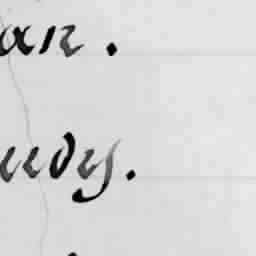 an.
udy.